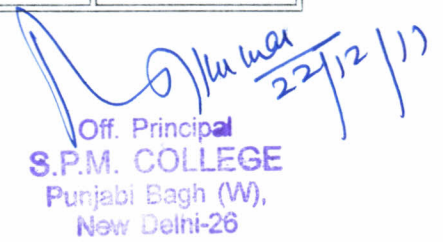 22/12/17
Off. Principal
S.P.M. COLLEGE
Punjabi Bagh (W),
New Delhi-26